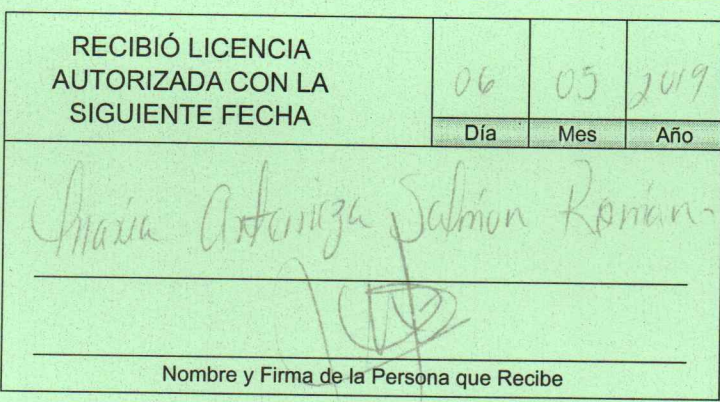 RECIBIÓ LICENCIA
AUTORIZADA CON LA
SIGUIENTE FECHA
06 05 2019
Día Mes Año
Maria Antonieza Salmon Roman
Nombre y Firma de la Persona que Recibe